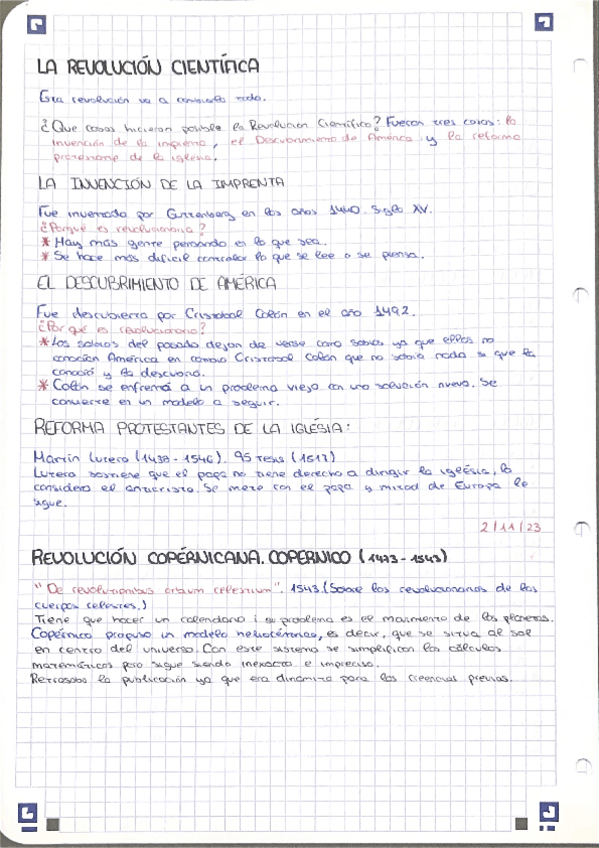 LA REVOLUCIÓN CIENTÍFICA
Esta revolución va a cambiarlo todo.
¿Que cosas hicieron posible la Revolución Científica? Fueron tres cosas: la
invención de la imprenta, el Descubrimiento de América y la reforma
protestante de la iglesia.
LA INVENCIÓN DE LA IMPRENTA
Fue inventada por Guttenberg en los años 1440. Siglo XV.
¿Porqué es revolucionaria?
* Hay más gente pensando es lo que sea.
* Se hace más dificil controlar lo que se lee o se piensa.
EL DESCUBRIMIENTO DE AMÉRICA
Fue descubierta por Cristobal Colón en el año 1492.
¿Por qué es revolucionario?
* Los sabios del pasado dejan de verse como sabios ya que ellos no
conocían América en cambio Cristobal Colón que no sabía nada si que la
conoció y la descubrió.
* Colón se enfrentó a un problema viejo con una solución nueva. Se
convierte en un modelo a seguir.
REFORMA PROTESTANTES DE LA IGLESIA:
Martín Lutero (1438 - 1546). 95 tesis (1517)
Lutero sostiene que el papa no tiene derecho a dirigir la iglésia, lo
considera el anticristo. Se mete con el papa y mitad de Europa le
sigue.
2/11/23
REVOLUCIÓN COPÉRNICANA. COPERNICO (1473 - 1543)
"De revolutionibus orbium celestium". 1543. (Sobre las revoluciones de los
cuerpos celestes.)
Tiene que hacer un calendario i su problema es el movimiento de los planetas.
Copérnico propuso un modelo heliocéntrico, es decir, que se sitúa al sol
en centro del universo. Con este sistema se simplifican los cálculos
matemáticos pero sigue siendo inexacto e impreciso.
Retrasaba la publicación ya que era dinamita para las creencias previas.